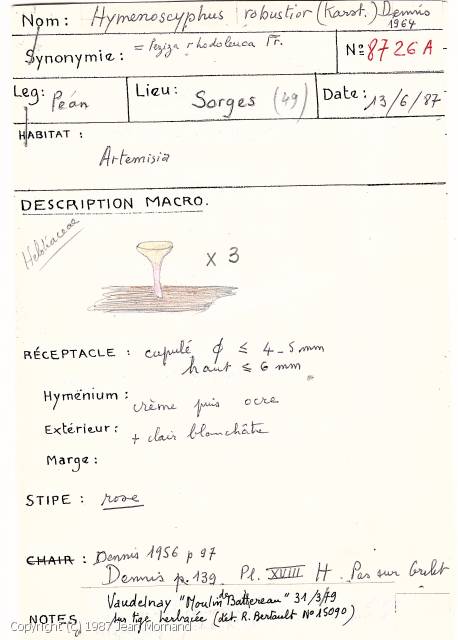 Nom: Hymenoscyphus robustior (Karst.) Dennis 1964
Synonymie: = Peziza rhodoleuca Fr.
Nº 8726A
Leg: Péan
Lieu: Sorges (49)
Date: 13/6/87
HABITAT :
Artemisia
DESCRIPTION MACRO.
Helotiaceae
x 3
RÉCEPTACLE : cupulé ϕ ≤ 4-5 mm
haut ≤ 6 mm
Hyménium : crème puis ocre
Extérieur : + clair blanchâtre
Marge :
STIPE : rose
CHAIR : Dennis 1956 p 97
Dennis p.139. Pl. XVIII H. Pas sur Grelet
Vaudelnay "Moulin de Battereau" 31/3/79
NOTES sur tige herbacée (dét. R. Bertault Nº 15090)
Copyright (c) 1987 Jean Mornand